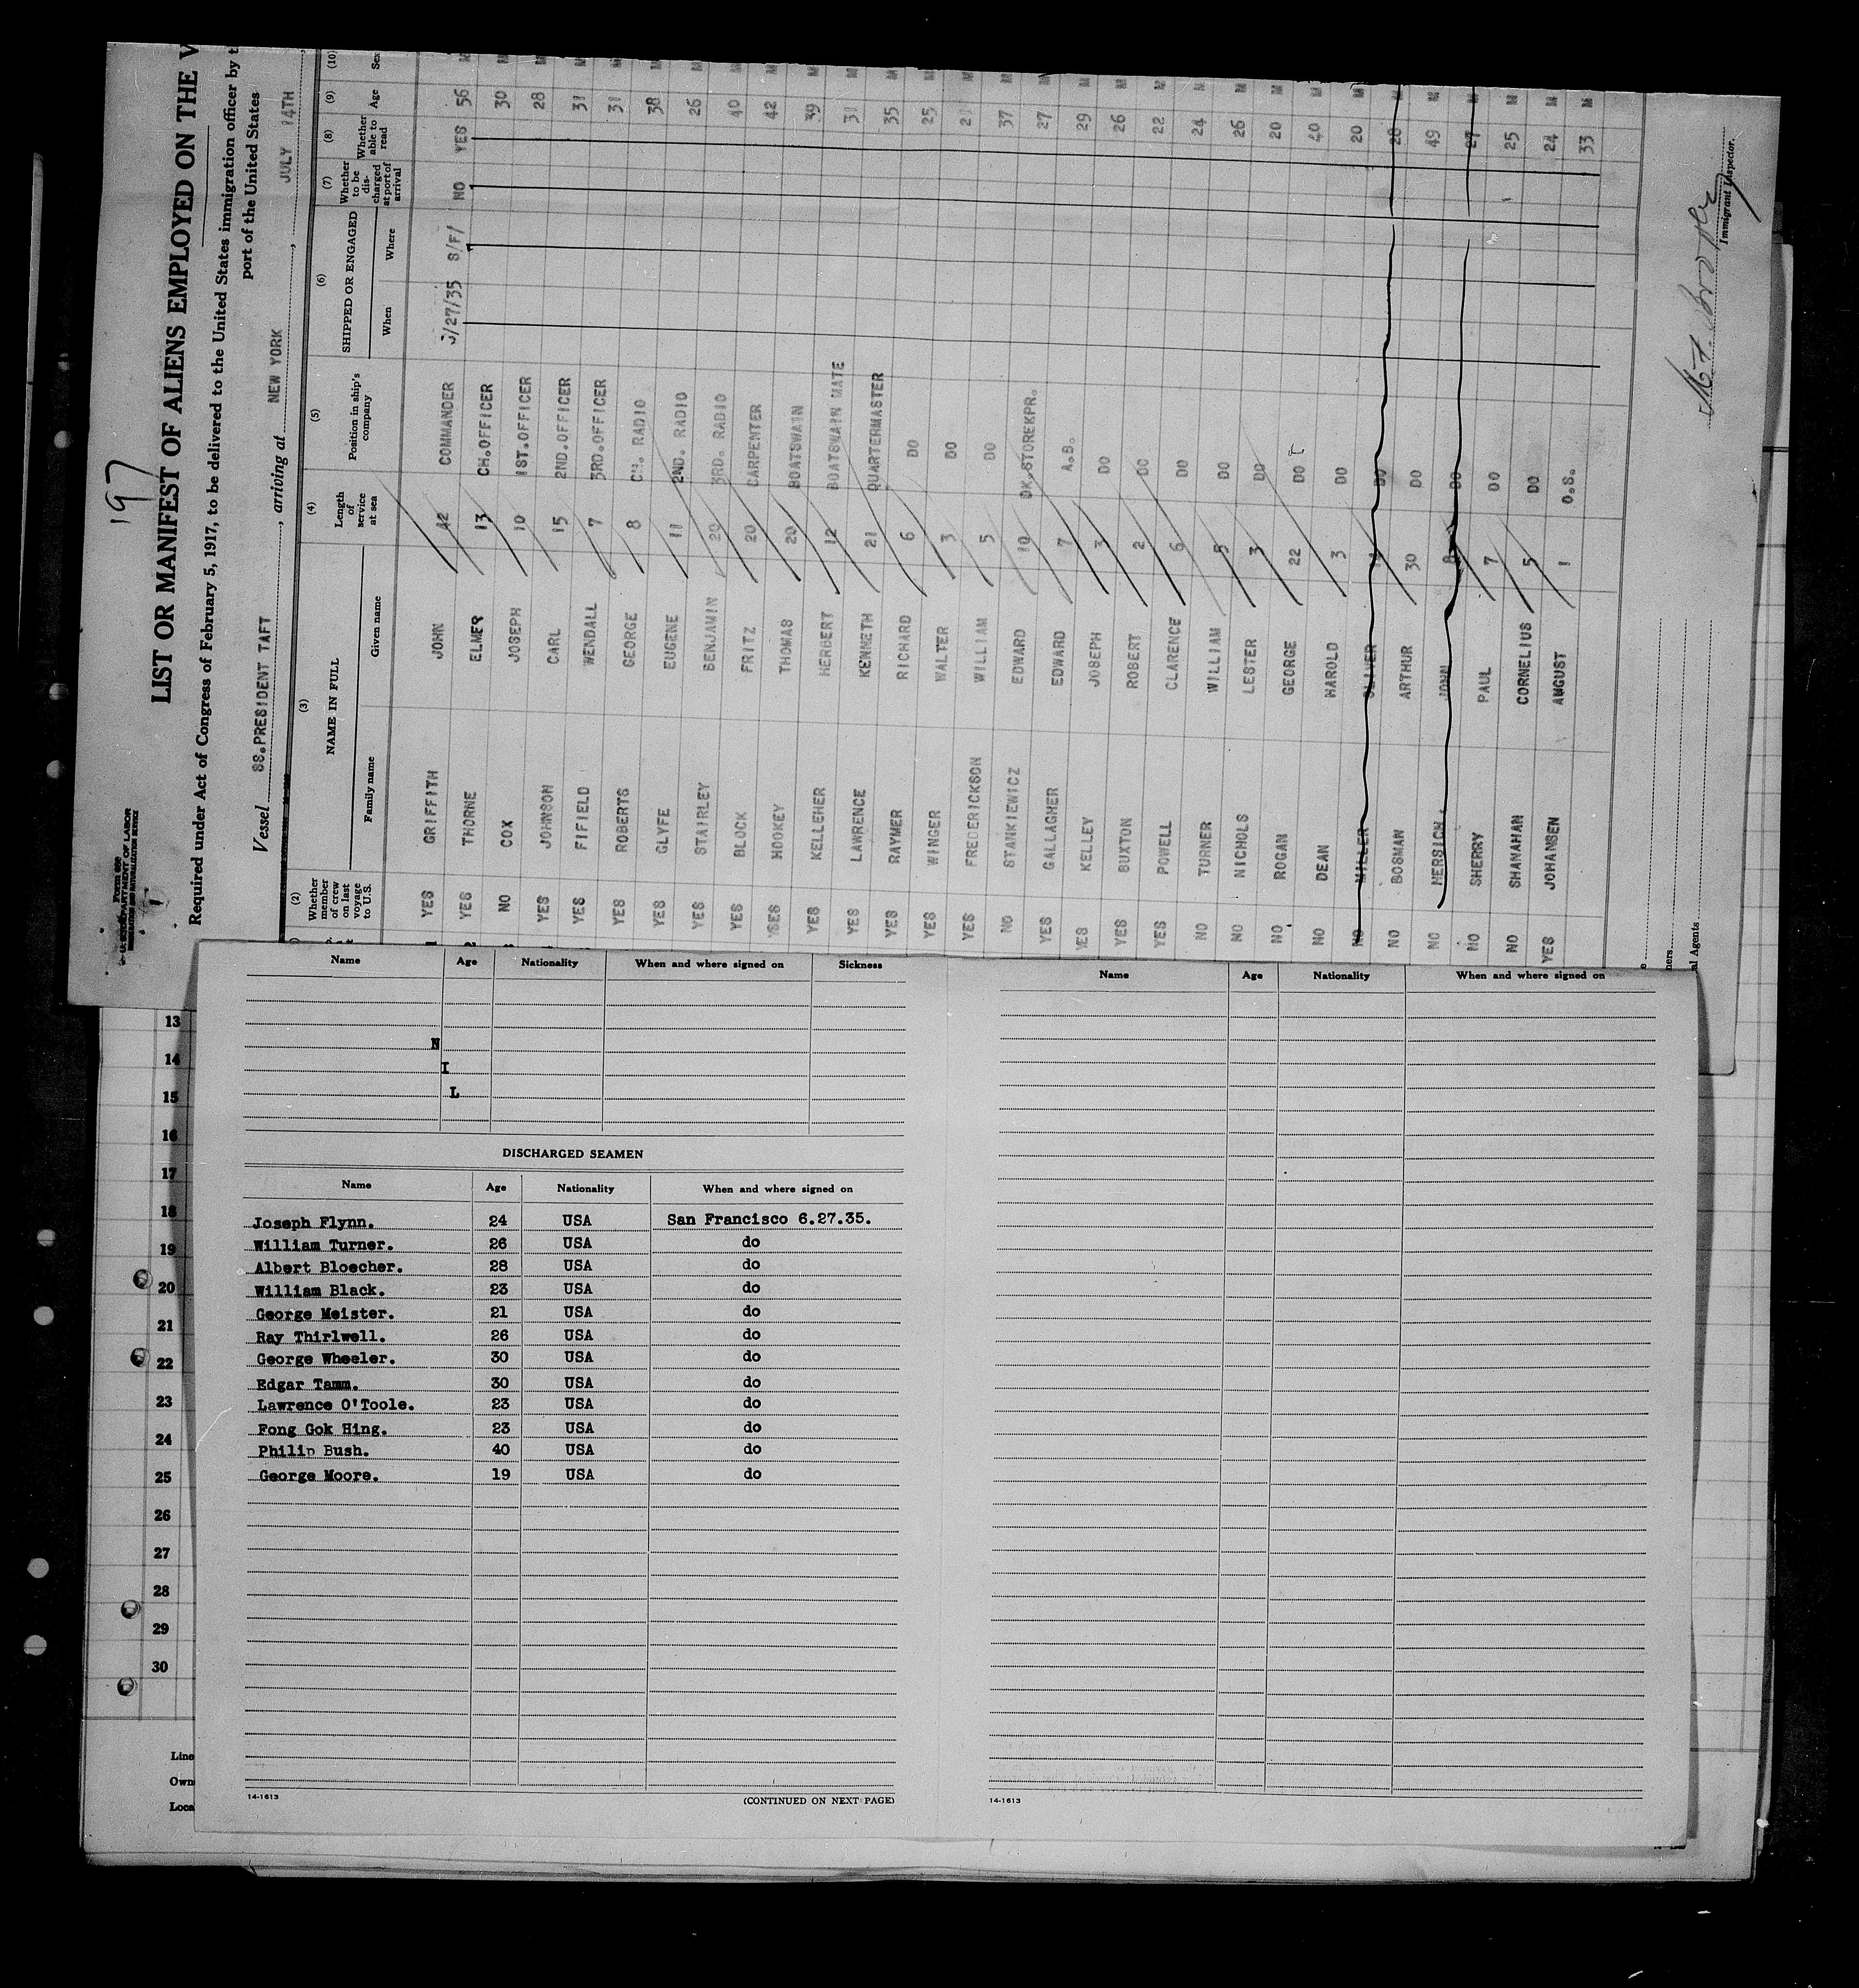 197
Form 689
U. S. DEPARTMENT OF LABOR
IMMIGRATION AND NATURALIZATION SERVICE
LIST OR MANIFEST OF ALIENS EMPLOYED ON THE V
Required under Act of Congress of February 5, 1917, to be delivered to the United States immigration officer by t
port of the United States
Vessel SS.PRESIDENT TAFT, arriving at NEW YORK, JULY 14TH
(2) (3) (4) (5) (6) (7) (8) (9) (10)
Whether member of crew on last voyage to U.S. NAME IN FULL Length of service at sea Position in ship's company SHIPPED OR ENGAGED Whether to be discharged at port of arrival Whether able to read Age Sex
Family name Given name When Where
YES GRIFFITH JOHN 42 COMMANDER /27/35 S/F/ NO YES 56 M
YES THORNE ELMER 13 CH.OFFICER 30 M
NO COX JOSEPH 10 1ST.OFFICER 28 M
YES JOHNSON CARL 15 2ND.OFFICER 31 M
YES FIFIELD WENDALL 7 3RD.OFFICER 31 M
YES ROBERTS GEORGE 8 CH. RADIO 38 M
YES GLYFE EUGENE 11 2ND. RADIO 26 M
YES STAIRLEY BENJAMIN 20 3RD. RADIO 40 M
YES BLOCK FRITZ 20 CARPENTER 42 M
YSES HOOKEY THOMAS 20 BOATSWAIN 39 M
YES KELLEHER HERBERT 12 BOATSWAIN MATE 31 M
YES LAWRENCE KENNETH 21 QUARTERMASTER 35 M
YES RAYMER RICHARD 6 DO 25 M
YES WINGER WALTER 3 DO 21 M
YES FREDERICKSON WILLIAM 5 DO 37 M
NO STANKIEWICZ EDWARD 10 DK.STOREKPR. 27 M
YES GALLAGHER EDWARD 7 A.B. 29 M
YES KELLEY JOSEPH 3 DO 26 M
YES BUXTON ROBERT 2 DO 22 M
YES POWELL CLARENCE 6 DO 24 M
NO TURNER WILLIAM 5 DO 26 M
NO NICHOLS LESTER 3 DO 20 M
NO ROGAN GEORGE 22 DO 40 M
NO DEAN HAROLD 3 DO 20 M
NO MILLER OLIVER DO 28 M
NO BOSMAN ARTHUR 30 DO 49 M
NO MERSICH. JOHN 8 DO 27 M
NO SHERRY PAUL 7 DO 25 M
NO SHANAHAN CORNELIUS 5 DO 24 M
YES JOHANSEN AUGUST 1 O.S. 33 M
Immigrant Inspector.
al Agents
Name Age Nationality When and where signed on Sickness
N
I
L
DISCHARGED SEAMEN
Name Age Nationality When and where signed on
Joseph Flynn. 24 USA San Francisco 6.27.35.
William Turner. 26 USA do
Albert Bloecher. 28 USA do
William Black. 23 USA do
George Meister. 21 USA do
Ray Thirlwell. 26 USA do
George Wheeler. 30 USA do
Edgar Tamm. 30 USA do
Lawrence O'Toole. 23 USA do
Fong Gok Hing. 23 USA do
Philip Bush. 40 USA do
George Moore. 19 USA do
14-1613 (CONTINUED ON NEXT PAGE)
Name Age Nationality When and where signed on
14-1613
13
14
15
16
17
18
19
20
21
22
23
24
25
26
27
28
29
30
Line
Own
Loca